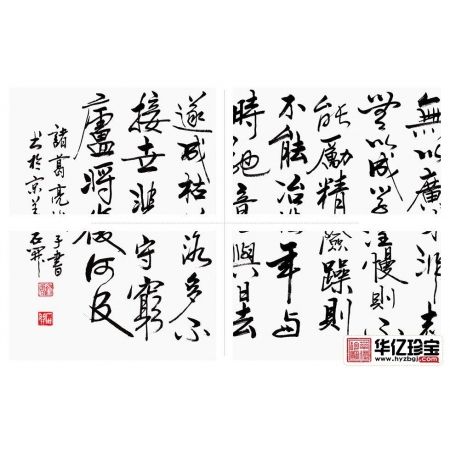 無以廣非志
無以成學淫慢則不
能勵精險躁則
不能冶年与
時馳意與日去
遂成枯落多不
接世悲守窮
廬將復何及
諸葛亮子書
书於京石开
华亿珍宝
www.hyzbgj.com